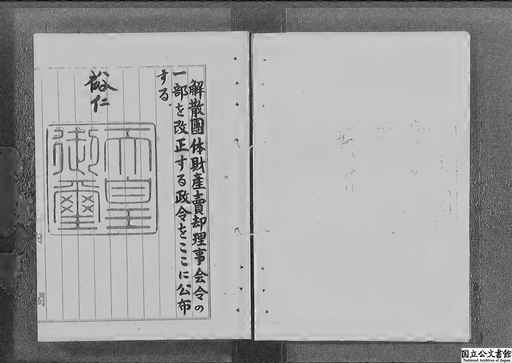 解散團体財産賣却理事会令の
一部を改正する政令をここに公布
する
裕仁
天皇
御璽
国立公文書館
National Archives of Japan